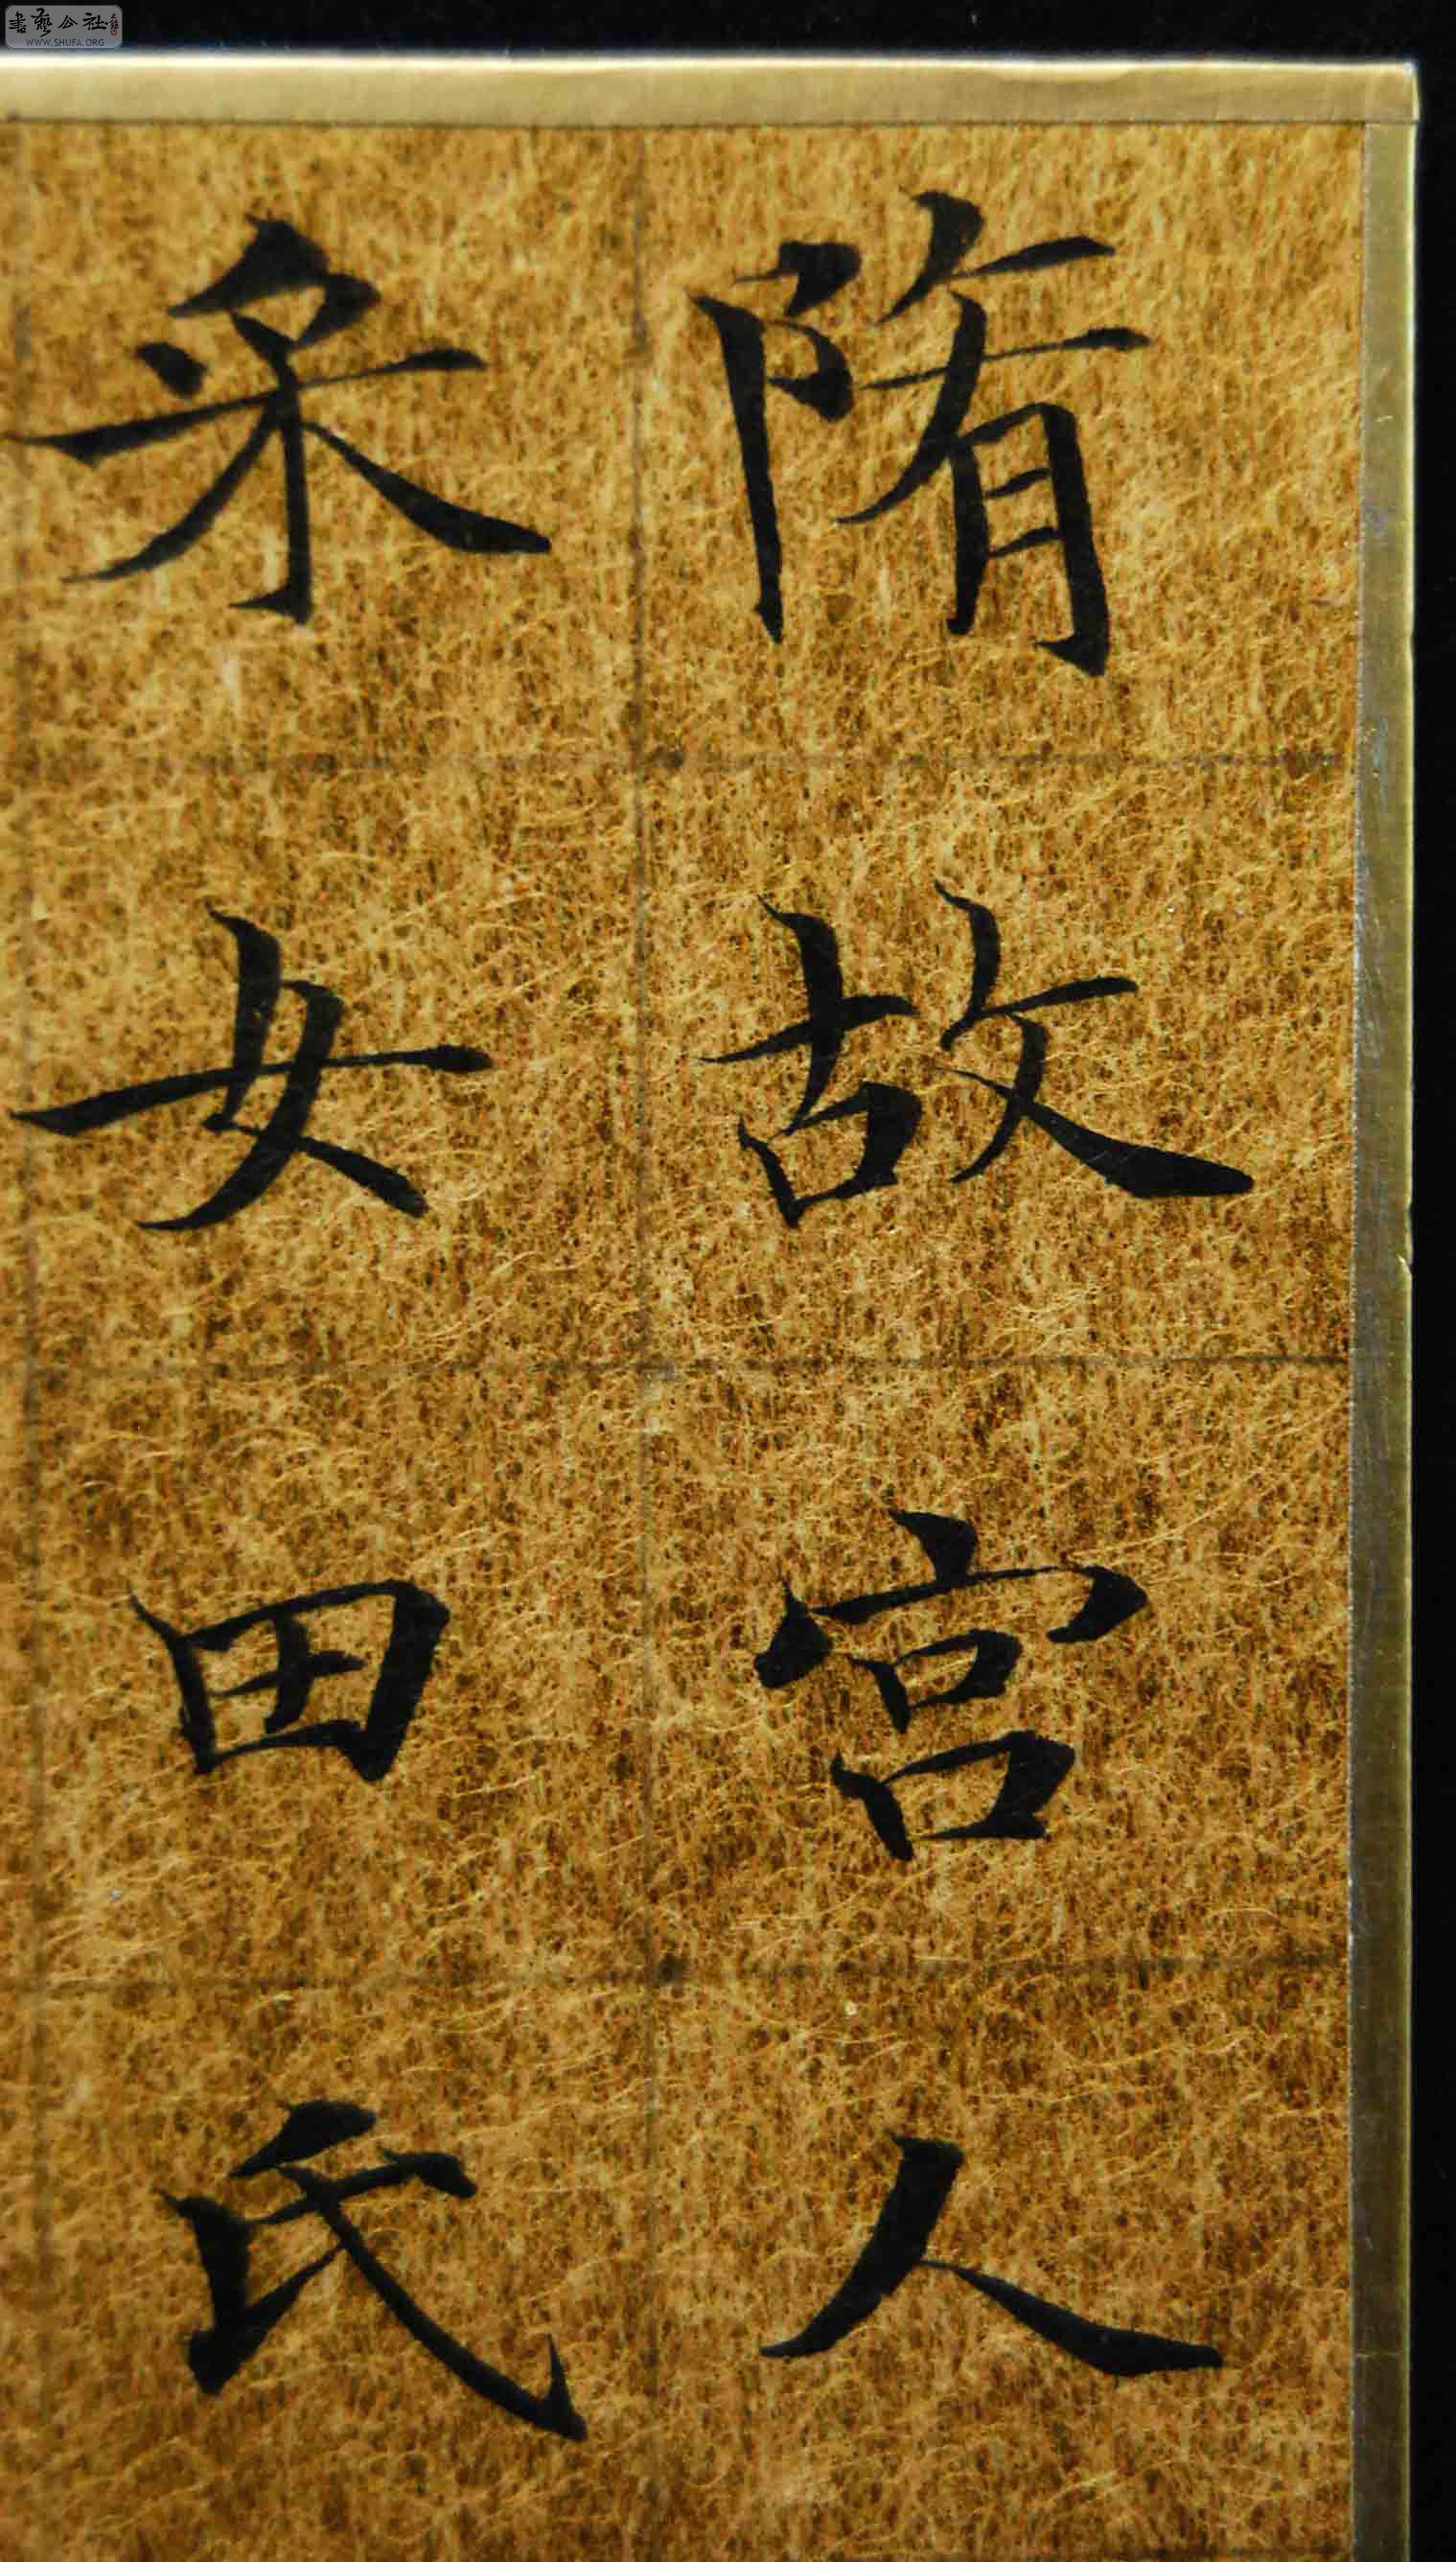 隋故宮人
采女田氏
書藝公社
WWW.SHUFA.ORG